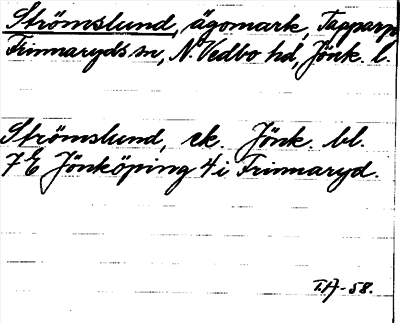 Strömslund, ägomark, Tapparp,
Frinnaryds sn, N. Vedbo hd, Jönk. l.
Strömslund, ek. Jönk. bl.
7E Jönköping 4i Frinnaryd.
T.A-58.